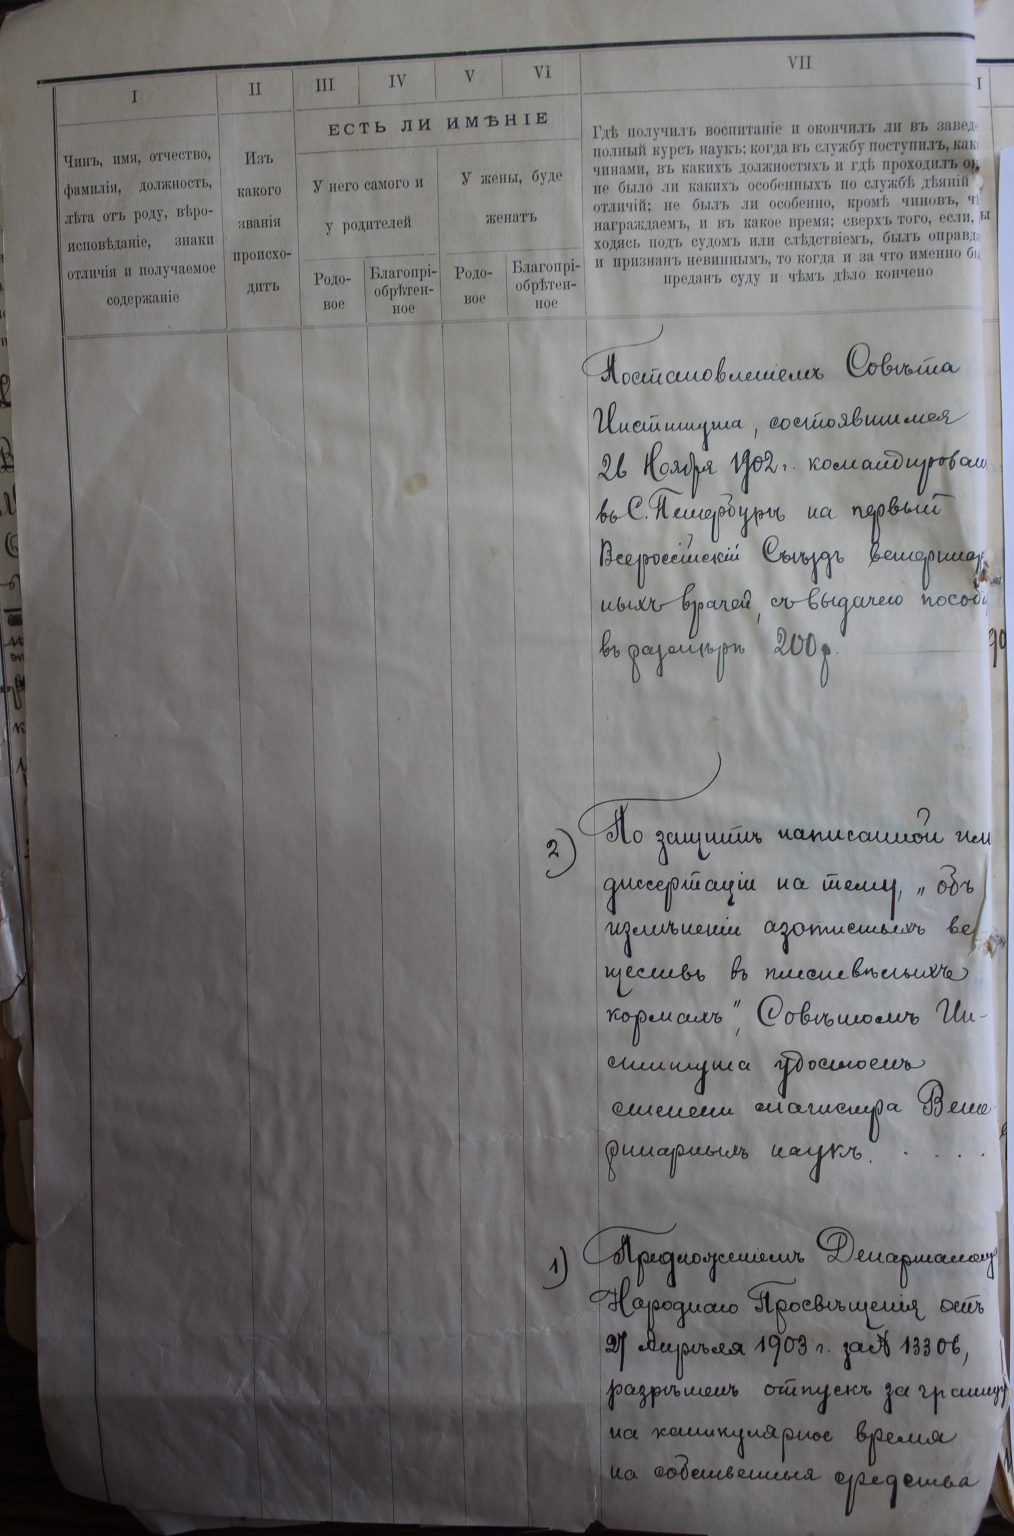 I II III IV V VI VII
ЕСТЬ ЛИ ИМѢНІЕ
Чинъ, имя, отчество,
фамилія, должность,
лѣта отъ роду, вѣро-
исповѣданіе, знаки
отличія и получаемое
содержаніе
Изъ
какого
званія
происхо-
дитъ
У него самого и
у родителей
У жены, буде
женатъ
Родо-
вое
Благопрі-
обрѣтен-
ное
Родо-
вое
Благопрі-
обрѣтен-
ное
Гдѣ получилъ воспитаніе и окончилъ ли въ завед
полный курсъ наукъ; когда въ службу поступилъ, как
чинами, въ какихъ должностяхъ и гдѣ проходилъ он
не было ли какихъ особенныхъ по службѣ дѣяній
отличій; не былъ ли особенно, кромѣ чиновъ, ч
награждаемъ, и въ какое время; сверхъ того, если,
ходясь подъ судомъ или слѣдствіемъ, былъ оправд
и признанъ невиннымъ, то когда и за что именно б
преданъ суду и чѣмъ дѣло кончено
Постановленіемъ Совѣта
Института, состоявшимся
26 Ноября 1902 г. командирован
въ С. Петербургъ на первый
Всероссійскій Съѣздъ ветеринар
ныхъ врачей, съ выдачею пособі
въ размѣрѣ 200 р.
2) По защитѣ написанной им
диссертаціи на тему, „объ
измѣненіи азотистыхъ ве-
ществъ въ плесневѣлыхъ
кормахъ", Совѣтомъ Ин-
ститута удостоенъ
степени магистра Вете
ринарныхъ наукъ. . . . .
1) Предложеніемъ Департамен
Народнаго Просвѣщенія отъ
27 Апрѣля 1903 г. за № 13306,
разрѣшенъ отпускъ за границу
на каникулярное время
на собственныя средства